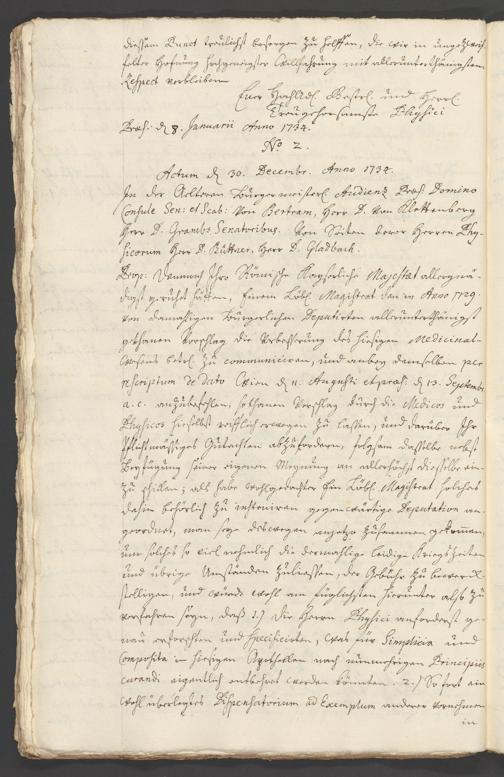 diessem Punct treulichst besorgen zu helffen, die wir in ungezweif-
felter Hofnung hochgeneigter Willfahrung mit allerunterthänigstem
Respect verbleiben
Euer HochAdl. Gestrl. und Herrl.
Treugehorsamste Physici
Præs: d. 8. Januarii Anno 1734.
No 2.
Actum d. 30. Decembr. Anno 1732.
In der Aelteren Burgermeisterl. Audienz Præs. Domino
Consule Sen: et Scab: von Bertram, Herr D. von Klettenberg
Herr D. Grambs, Senatoribus. Von Seiten derer Herren Phy-
sicorum Herr D. Büttner, Herr D. Gladbach.
Prop: Demnach Ihro Römische Kayserliche Majestät allergnä-
digst geruhet hätten, Einem Löbl. Magistrat den in Anno 1729.
von damahligen Burgerlichen Deputirten allerunterthänigst
gethanen Vorschlag die Verbesserung des hiesigen Medicinal-
Wesens betrl. zu communiciren, und anbey demselben per
rescriptum de dato Wien d. 11. Augusti et præs. d. 13. Septembr.
a. c. anzubefehlen, sothanen Vorschlag durch die Medicos und
Physicos hieselbst reifflich erwegen zu lassen, und darüber Ihr
Pflichtmässiges Gutachten abzufordern, folgsam dasselbe nebst
Beyfügung seiner eigenen Meynung an allerhöchst dieselbe ein-
zu schicken; als habe wohlgedachter Ein Löbl. Magistrat solches
dahin behörlich zu instruiren gegenwärtige Deputation an-
geordnet, man seye deswegen anjetzo zusammen gekommen,
um solches so viel nehmlich die dermahlige leidige Kriegszeiten
und übrige Umständen zuliessen, der Gebühr zu bewerck-
stelligen, und würde wohl am füglichsten hierunter also zu
verfahren seyn, daß 1.) die Herren Physici zuforderst ge-
nau erforschten und specificirten, was für Simplicia und
Composita in hiesigen Apothecken nach nunmehrigen Principiis
curandi eigentlich entbehret werden könnten. 2.) So fort ein
wohl überlegtes Dispensatorium ad Exemplum anderer vornehmen
in